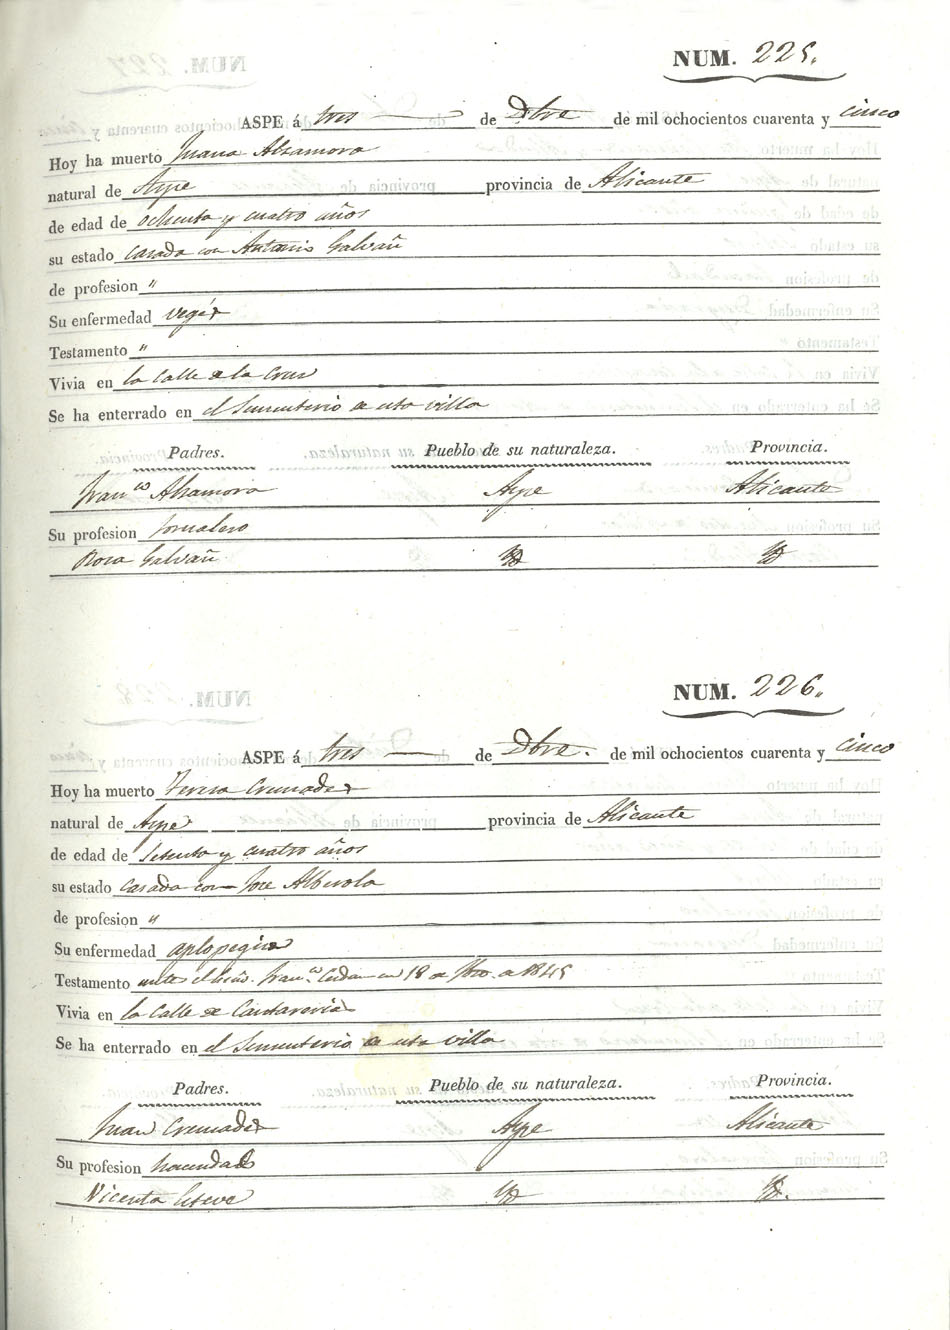 NUM. 225.
ASPE á tres de Dbre de mil ochocientos cuarenta y cinco
Hoy ha muerto Juana Alzamora
natural de Aspe provincia de Alicante
de edad de ochenta y cuatro años
su estado casada con Antonio Galvañ
de profesion "
Su enfermedad vegéz
Testamento "
Vivia en la Calle de la Cruz
Se ha enterrado en el Sementerio de esta villa
Padres. Pueblo de su naturaleza. Provincia.
Franco Alzamora Aspe Alicante
Su profesion Jornalero
Rosa Galvañ Yd Yd
NUM. 226.
ASPE á tres de Dbre. de mil ochocientos cuarenta y cinco
Hoy ha muerto Teresa Cremades
natural de Aspe provincia de Alicante
de edad de setenta y cuatro años
su estado casada con Jose Alberola
de profesion "
Su enfermedad aplopegia
Testamento ante el Esño. Franco en 18 de de 1845
Vivia en la Calle de Cantarerias
Se ha enterrado en el Sementerio de esta villa
Padres. Pueblo de su naturaleza. Provincia.
Juan Cremades Aspe Alicante
Su profesion hacendado
Vicenta Esteve Yd Yd.